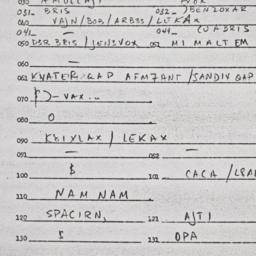 031_ BRIS 032_ )BENZOXAR
040 VAJN/BOB/ARBES/LEKAX
041_ — 044_ CUABRIS
050 DSR BRIS/JENSVOX 052 MI MALTEM
060 —
061 KVATER GAP AFM7ANT/SANDIV GAP
070 )-VAX...
080 O
090 KBIXLAX/LEKAX
091 — 092 —
100 $ 101 CACA/
110 NAM NAM
120 SPACIRN, 121 AJTI
130 $ 131 OPA